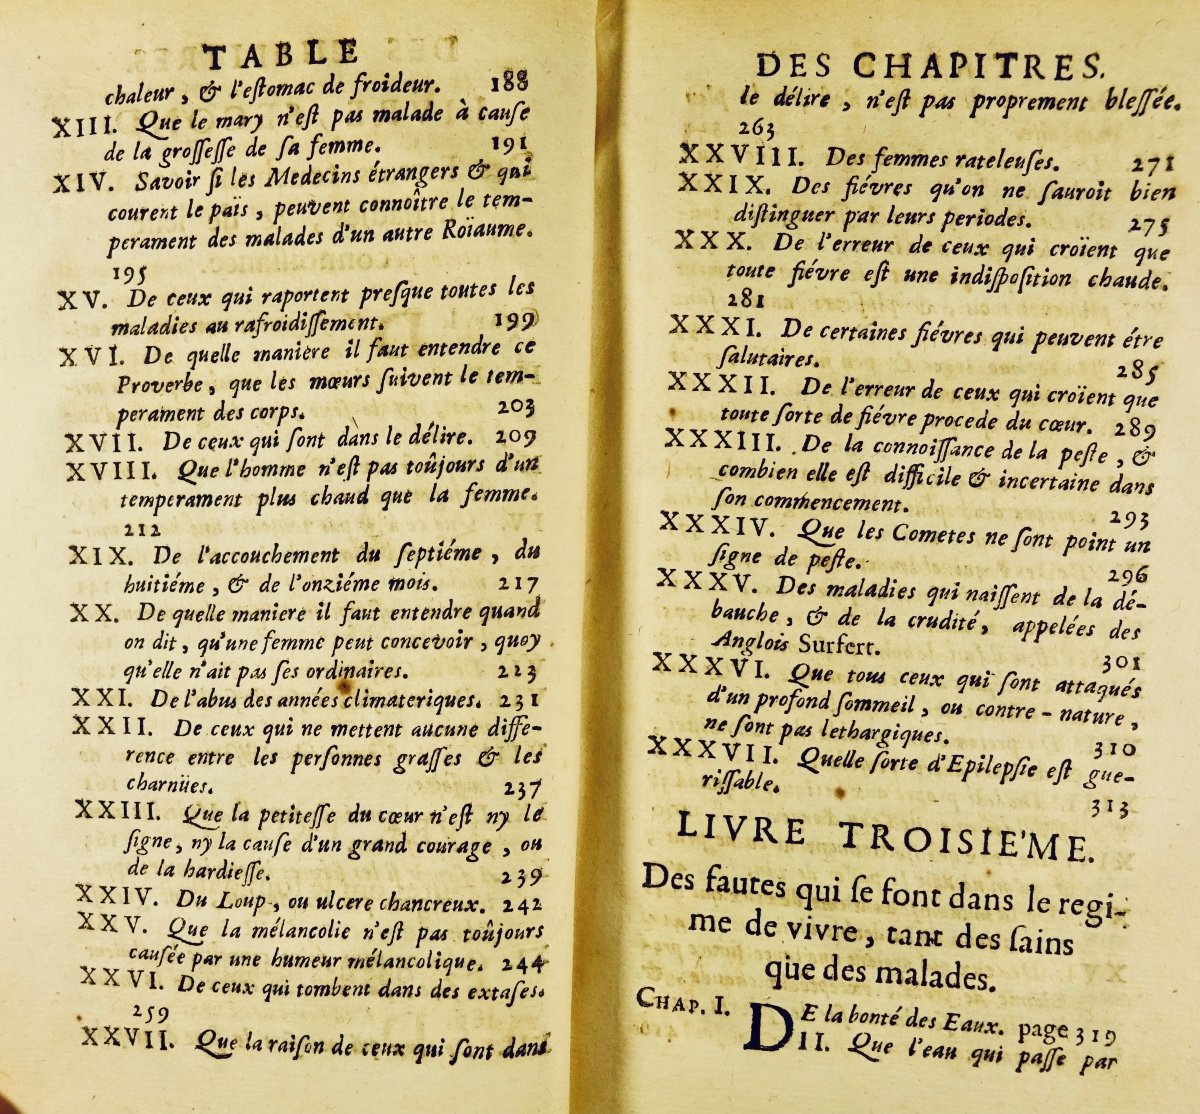 TABLE
chaleur, & l'eſtomac de froideur. 188
XIII. Que le mary n'eſt pas malade à cauſe
de la groſſeſſe de ſa femme. 191
XIV. Savoir ſi les Medecins étrangers & qui
courent le païs, peuvent connoître le tem-
perament des malades d'un autre Roïaume.
195
XV. De ceux qui raportent preſque toutes les
maladies au rafroidiſſement. 199
XVI. De quelle maniere il faut entendre ce
Proverbe, que les mœurs ſuivent le tem-
perament des corps. 203
XVII. De ceux qui ſont dans le délire. 209
XVIII. Que l'homme n'eſt pas toûjours d'un
temperament plus chaud que la femme.
212
XIX. De l'accouchement du ſeptiéme, du
huitiéme, & de l'onziéme mois. 217
XX. De quelle maniere il faut entendre quand
on dit, qu'une femme peut concevoir, quoy
qu'elle n'ait pas ſes ordinaires. 223
XXI. De l'abus des années climateriques. 231
XXII. De ceux qui ne mettent aucune diffe-
rence entre les perſonnes graſſes & les
charnües. 237
XXIII. Que la petiteſſe du cœur n'eſt ny le
ſigne, ny la cauſe d'un grand courage, ou
de la hardieſſe. 239
XXIV. Du Loup, ou ulcere chancreux. 242
XXV. Que la mélancolie n'eſt pas toûjours
cauſée par une humeur mélancolique. 244
XXVI. De ceux qui tombent dans des extaſes.
259
XXVII. Que la raiſon de ceux qui ſont dans
DES CHAPITRES.
le délire, n'eſt pas proprement bleſſée.
263
XXVIII. Des femmes rateleuſes. 271
XXIX. Des fiévres qu'on ne ſauroit bien
diſtinguer par leurs periodes. 275
XXX. De l'erreur de ceux qui croïent que
toute fiévre eſt une indiſpoſition chaude.
281
XXXI. De certaines fiévres qui peuvent étre
ſalutaires. 285
XXXII. De l'erreur de ceux qui croïent que
toute ſorte de fiévre procede du cœur. 289
XXXIII. De la connoiſſance de la peſte, &
combien elle eſt difficile & incertaine dans
ſon commencement. 293
XXXIV. Que les Cometes ne ſont point un
ſigne de peſte. 296
XXXV. Des maladies qui naiſſent de la dé-
bauche, & de la crudité, appelées des
Anglois Surfert. 301
XXXVI. Que tous ceux qui ſont attaqués
d'un profond ſommeil, ou contre-nature,
ne ſont pas lethargiques. 310
XXXVII. Quelle ſorte d'Epilepſie eſt gue-
riſſable. 313
LIVRE TROISIE'ME.
Des fautes qui ſe font dans le regi-
me de vivre, tant des ſains
que des malades.
CHAP. I. DE la bonté des Eaux. page 319
II. Que l'eau qui paſſe par